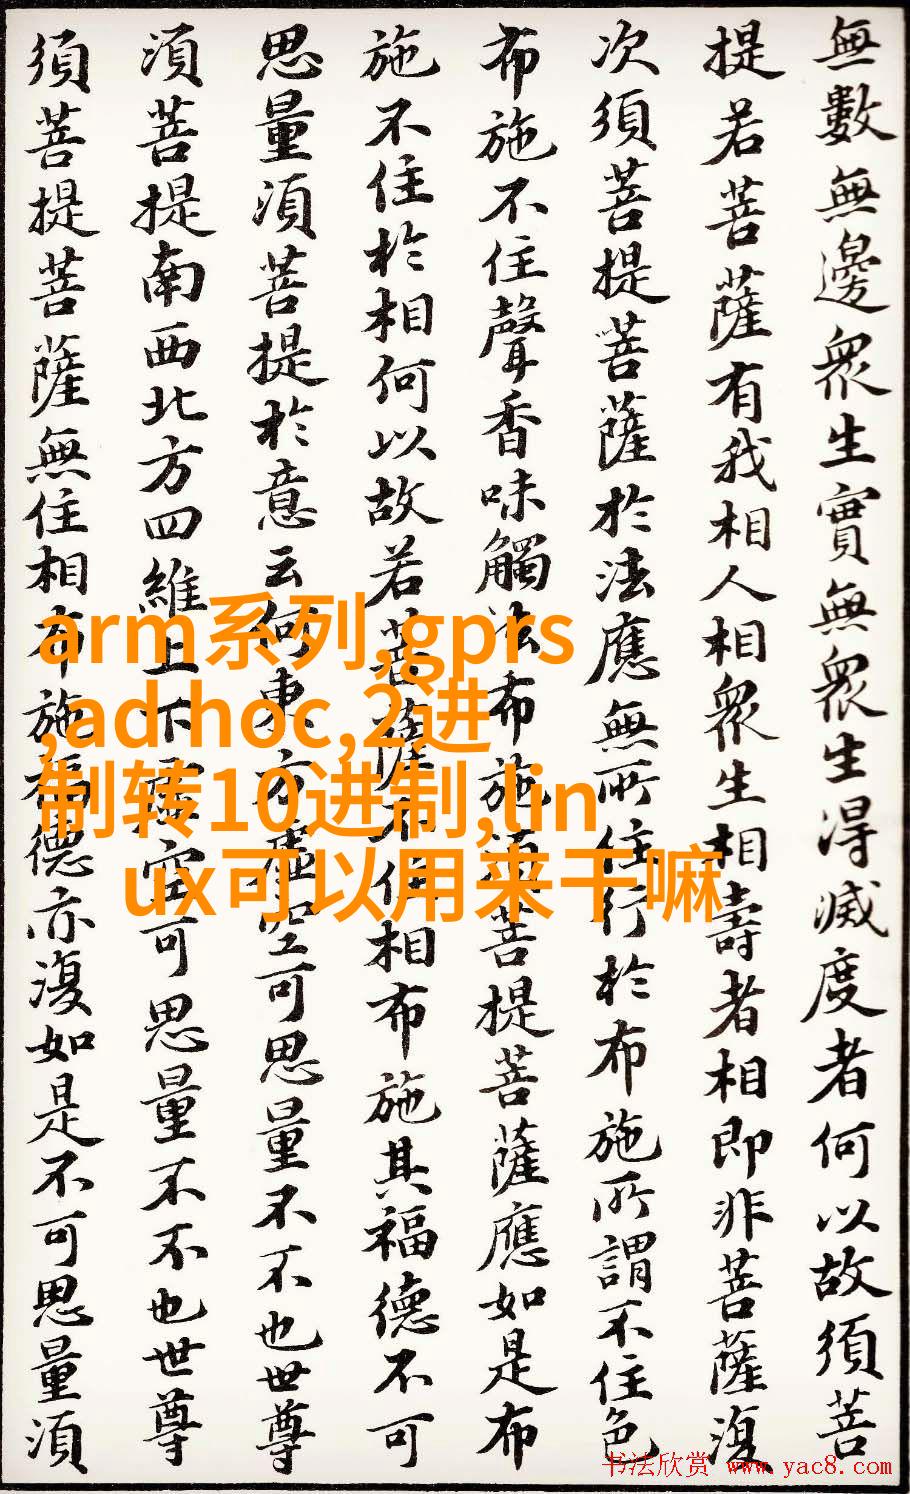 無數無邊衆生實無衆生得滅度者何以故須菩
提若菩薩有我相人相衆生相壽者相即非菩薩復
次須菩提菩薩於法應無所住行於布施所謂不住色
布施不住聲香味觸法布施須菩提菩薩應如是布
施不住於相何以故若菩薩不住相布施其福德不可
思量須菩提於意云何東方虛空可思量不不也世尊
須菩提南西北方四維上下虛空可思量不不也世尊
須菩提菩薩無住相布施福德亦復如是不可思量須
arm系列,gprs
,ad hoc,2进
制转10进制,lin
ux可以用来干嘛
书法欣赏 www.yac8.com